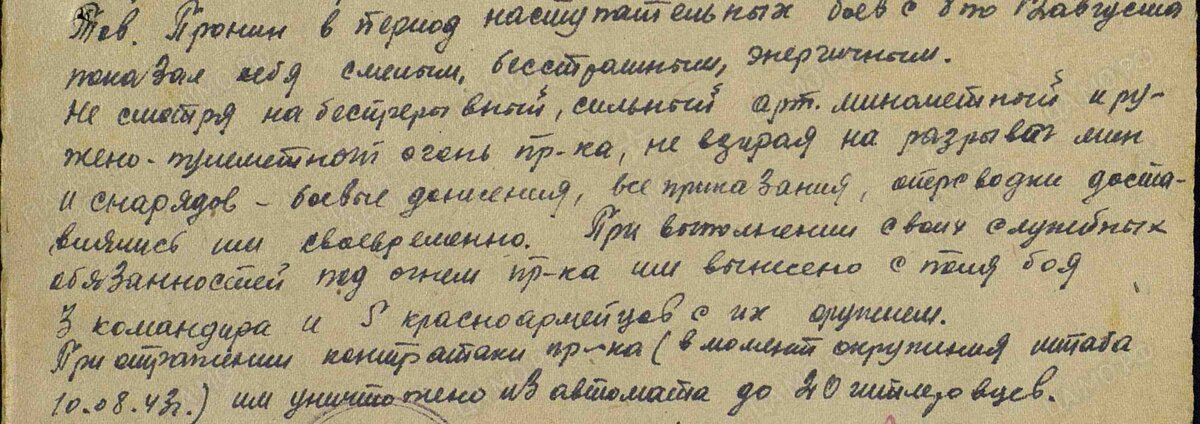 Тов. Пронин в период наступательных боев с 8 по 12 августа
показал себя смелым, бесстрашным, энергичным.
Не смотря на беспрерывный, сильный арт. минометный и ру-
жено-пулеметный огонь пр-ка, не взирая на разрывы мин
и снарядов - боевые донесения, все приказания, оперсводки доста-
влялись им своевременно. При выполнении своих служебных
обязанностей под огнем пр-ка им вынесено с поля боя
3 командира и 5 красноармейцов с их оружием.
При отражении контратаки пр-ка (в момент окружения штаба
10.08.43г.) им уничтожено из автомата до 20 гитлеровцев.